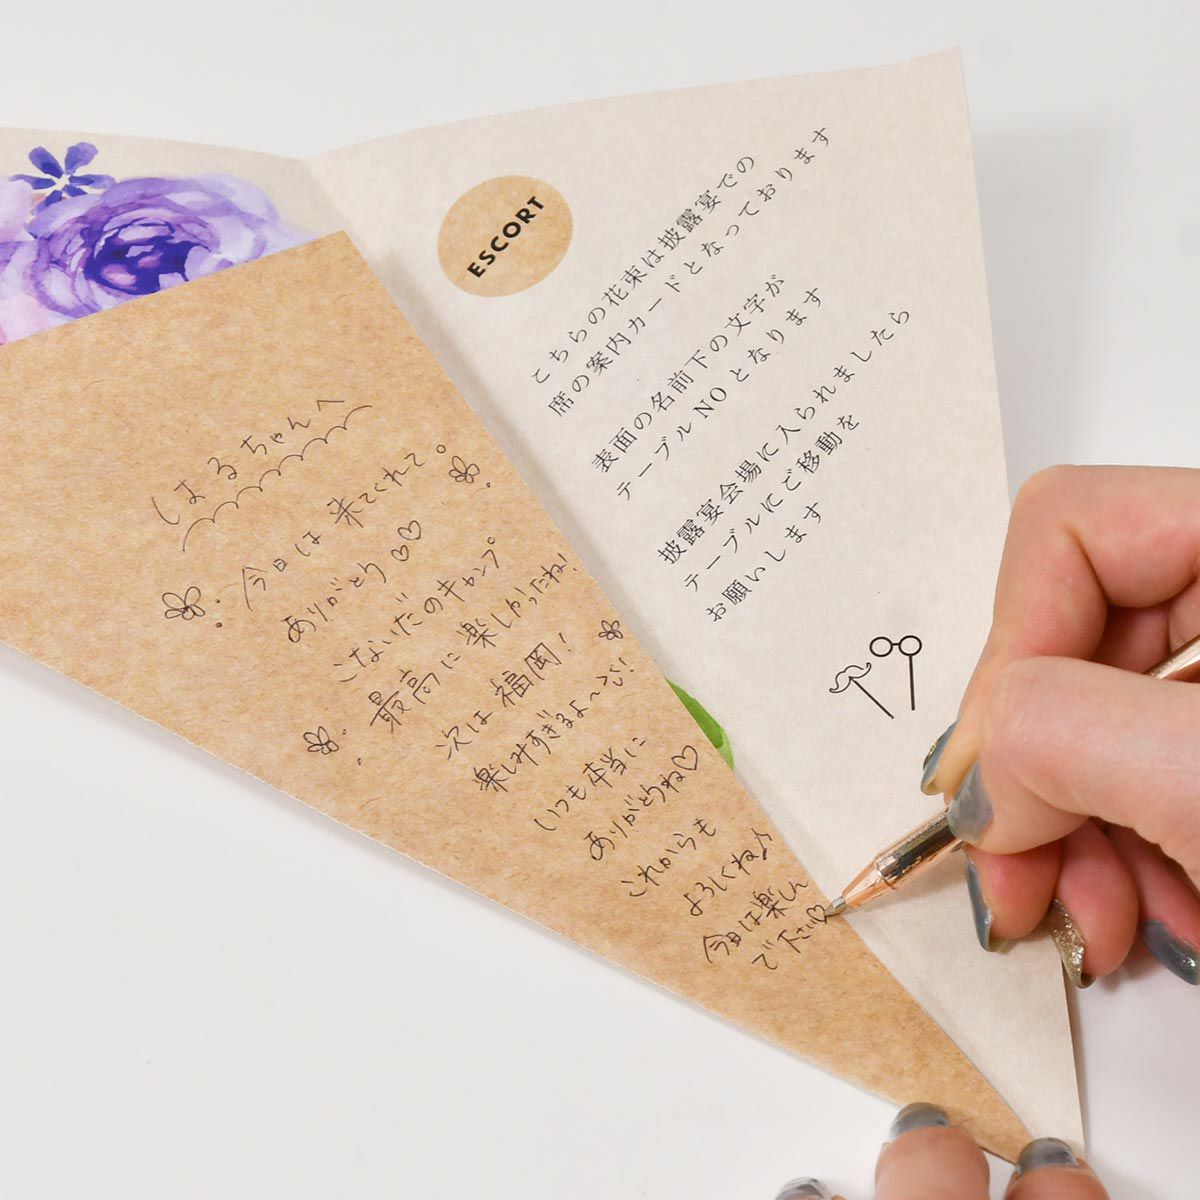 ESCORT
こちらの花束は披露宴での
席の案内カードとなっております
表面の名前下の文字が
テーブルNOとなります
披露宴会場に入られましたら
テーブルにご移動を
お願いします
はるちゃんへ
今日は来てくれて。
ありがとう♡♡
こないだのキャンプ
最高に楽しかったね!
次は福岡!
楽しみすぎるよ〜!
いつも本当に
ありがとうね♡
これからも
よろしくね♪
今日は楽しん
で下さい♡